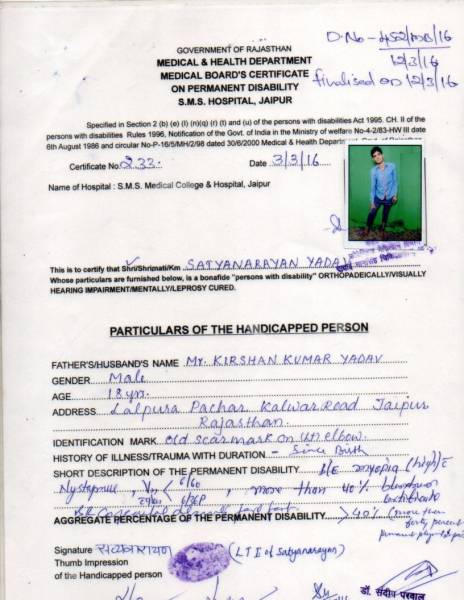 D.No - 452/MB/16
12/3/16
finalised on 12/3/16
GOVERNMENT OF RAJASTHAN
MEDICAL & HEALTH DEPARTMENT
MEDICAL BOARD'S CERTIFICATE
ON PERMANENT DISABILITY
S.M.S. HOSPITAL, JAIPUR
Specified in Section 2 (b) (e) (l) (n)(q) (r) (t) and (u) of the persons with disabilities Act 1995. CH. II of the
persons with disabilities Rules 1996, Notification of the Govt. of India in the Ministry of welfare No-4-2/83-HW III date
6th August 1986 and circular No-P-16/5/MH/2/98 dated 30/6/2000 Medical & Health
Certificate No. 233. Date 3/3/16
Name of Hospital : S.M.S. Medical College & Hospital, Jaipur
This is to certify that Shri/Shrimati/Km SATYANARAYAN YADAV
Whose particulars are furnished below, is a bonafide "persons with disability" ORTHOPADEICALLY/VISUALLY
HEARING IMPAIRMENT/MENTALLY/LEPROSY CURED.
PARTICULARS OF THE HANDICAPPED PERSON
FATHER'S/HUSBAND'S NAME Mr. KIRSHAN KUMAR YADAV
GENDER Male
AGE 18 yrs.
ADDRESS Lalpura Pachar Kalwar Road Jaipur
Rajasthan.
IDENTIFICATION MARK Old scar mark on elbow.
HISTORY OF ILLNESS/TRAUMA WITH DURATION - Since Birth
SHORT DESCRIPTION OF THE PERMANENT DISABILITY B/E myopia (high) E
Nystagmus, Vn 6/60 , more than 40%
6/36P certificate
AGGREGATE PERCENTAGE OF THE PERMANENT DISABILITY >40% (more than
forty percent
Signature सत्यनारायण (LTI of Satyanarayan)
Thumb Impression
of the Handicapped person
डॉ. संदीप परवाल